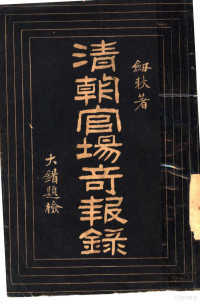 釰秋著
清朝官場奇報錄
大錯題檢